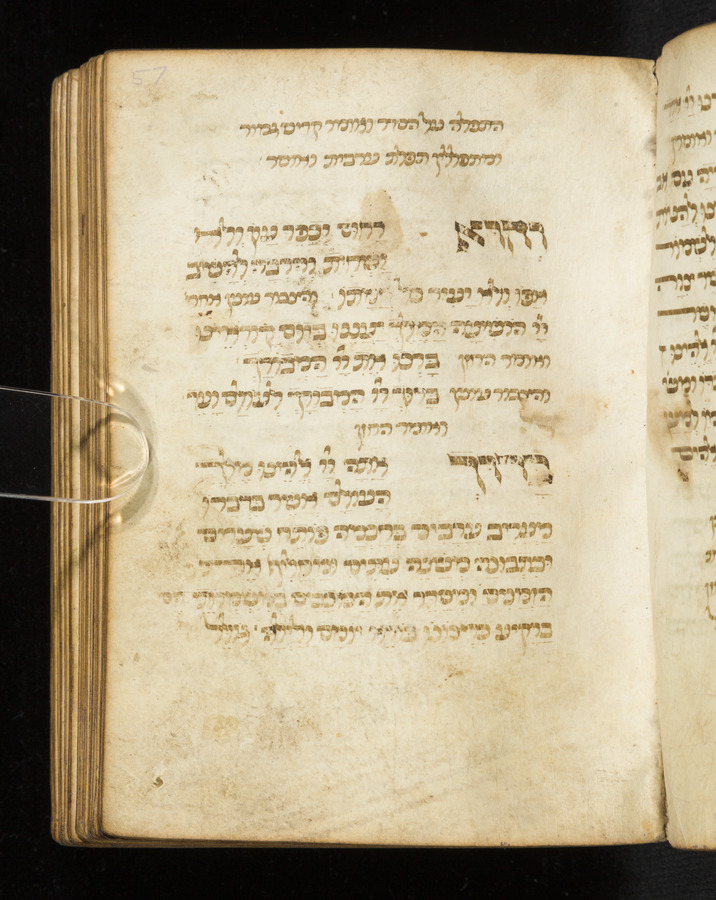 51
התפלה על הסדר ואומר קדיש גמור
ומתפללין תפלת ערבית ואומר
וְהוּא רחום יכפר עון ולא
ישחית והרבה להשיב
אפו ולא יעיר כל חמתו והצבור עונין אחריו
יי הושיעה המלך יעננו ביום קוראינו
ואומר החזן ברכו את יי המבורך
והצבור עונין ברוך יי המבורך לעולם ועד
ואומר החזן
ברוך אתה יי אלהינו מלך
העולם אשר בדברו
מעריב ערבים בחכמה פותח שערים
ובתבונה משנה עתים ומחליף את
הזמנים ומסדר את הכוכבים במשמרותיהם
ברקיע כרצונו בורא יומם ולילה גולל